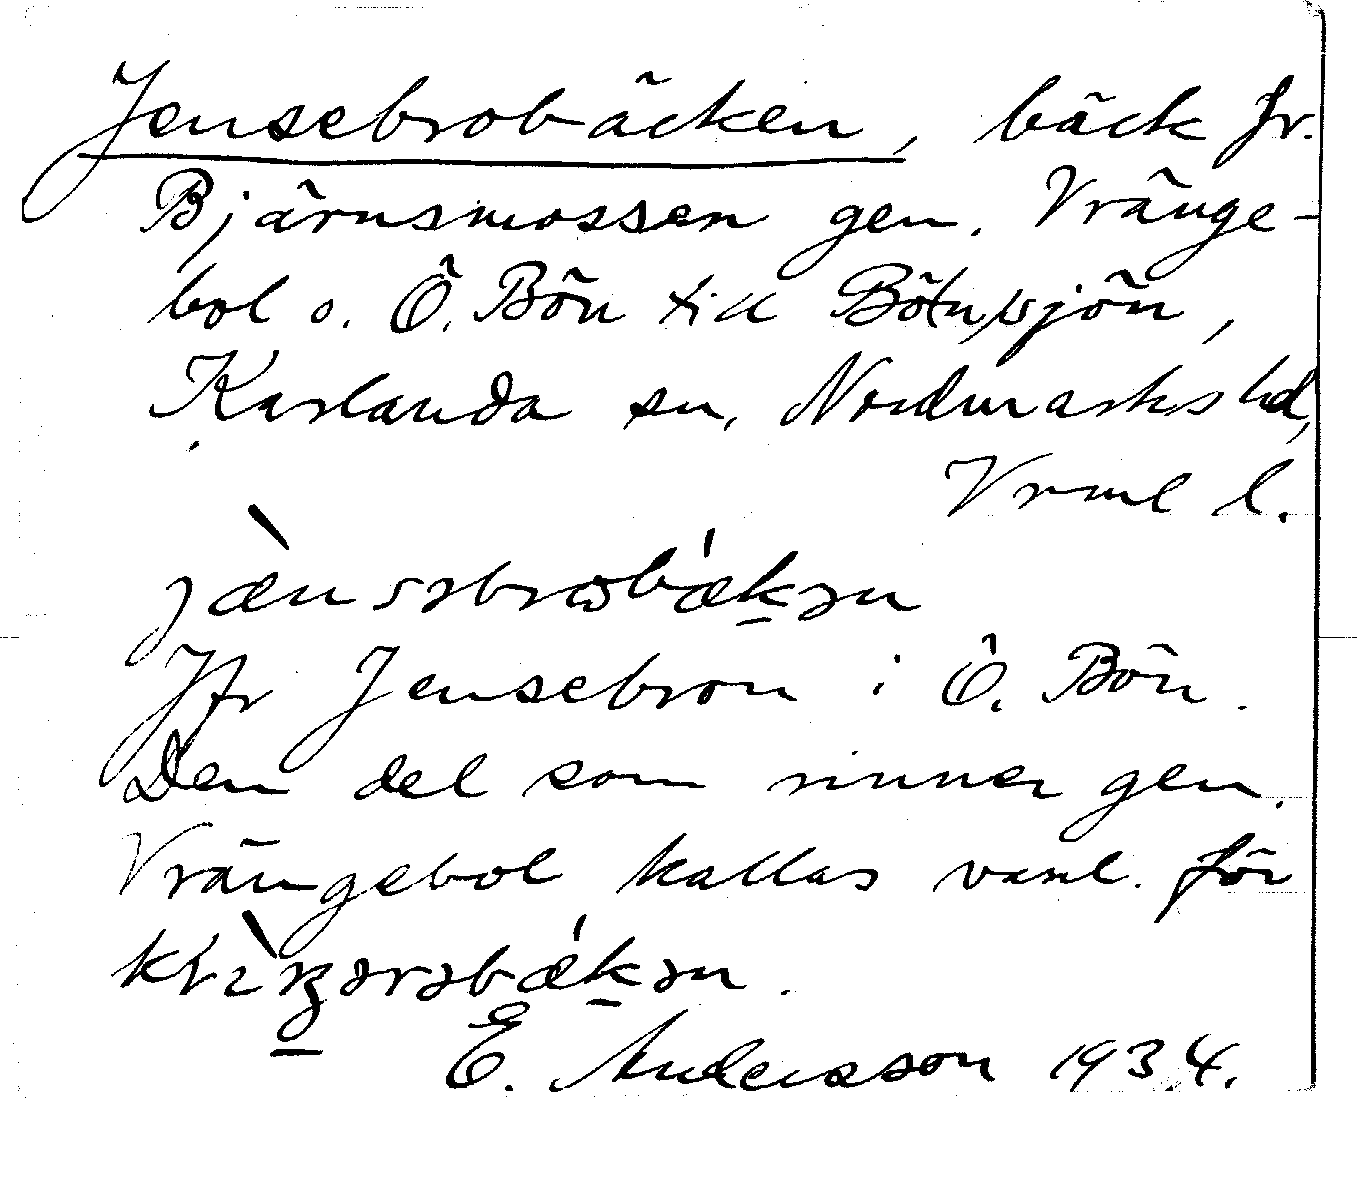 Jensebrobäcken, bäck fr.
Bjärnsmossen gen. Vränge-
bol o. Ö. Bön till Bönsjön,
Karlanda sn, Nordmarks hd,
Vrml l.
jæ̀nsəbrɷbæ̍k̠ən
Jfr Jensebron i Ö. Bön.
Den del som rinner gen.
Vrängebol kallas vanl. för
.
E. Andersson 1934.